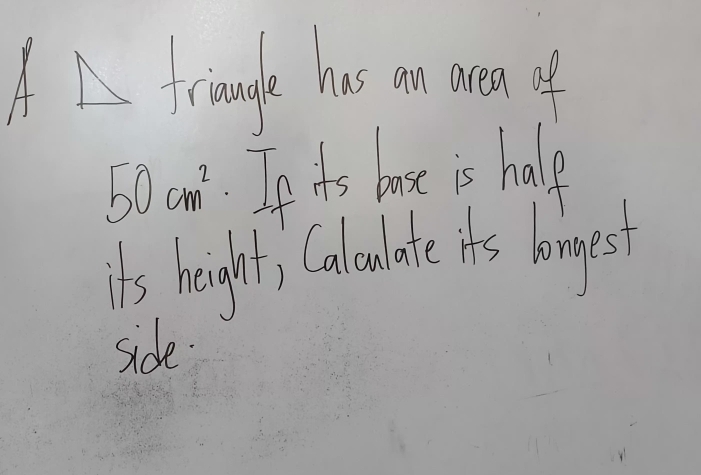 A triangle has an area of
50 cm². If its base is half
its height, Calculate its longest
side.